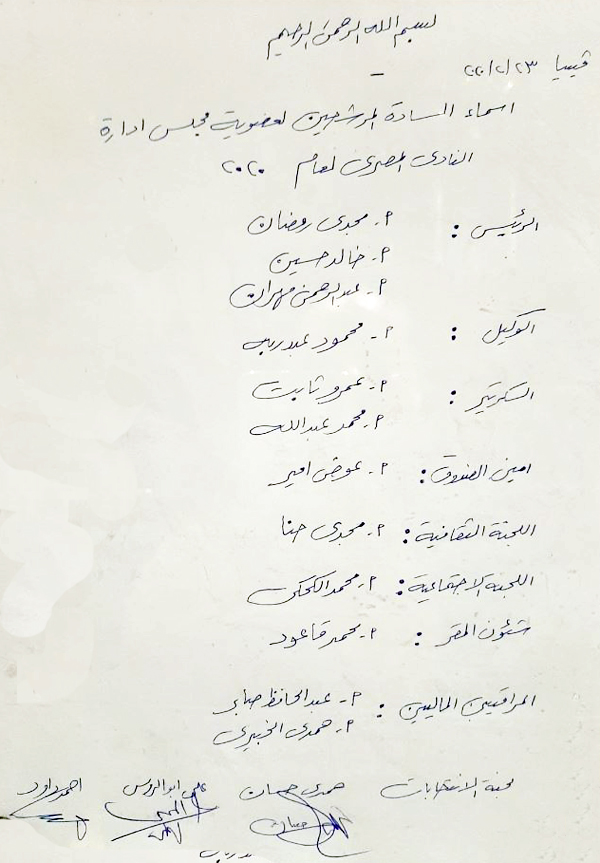 بسم الله الرحمن الرحيم
فيينا ٢٠٢٠/٢/٢٣
اسماء السادة المرشحين لعضوية مجلس ادارة
النادى المصرى لعام ٢٠٢٠
الرئيس : م. مجدى رمضان
م. خالد حسين
م. عبدالرحمن مهران
الوكيل : م. محمود عبدربه
السكرتير : م. عمرو ثابت
م. محمد عبدالله
امين الصندوق : م. عوض امير
اللجنة الثقافية : م. مجدى حنا
اللجنة الاجتماعية : م. محمد الكحكى
شئون المقر : م. محمد قاعود
المراقبين الماليين : م. عبدالحافظ صابر
م. حمدى الخبيرى
لجنة الانتخابات حمدى حسان على ابوالروس احمد داود